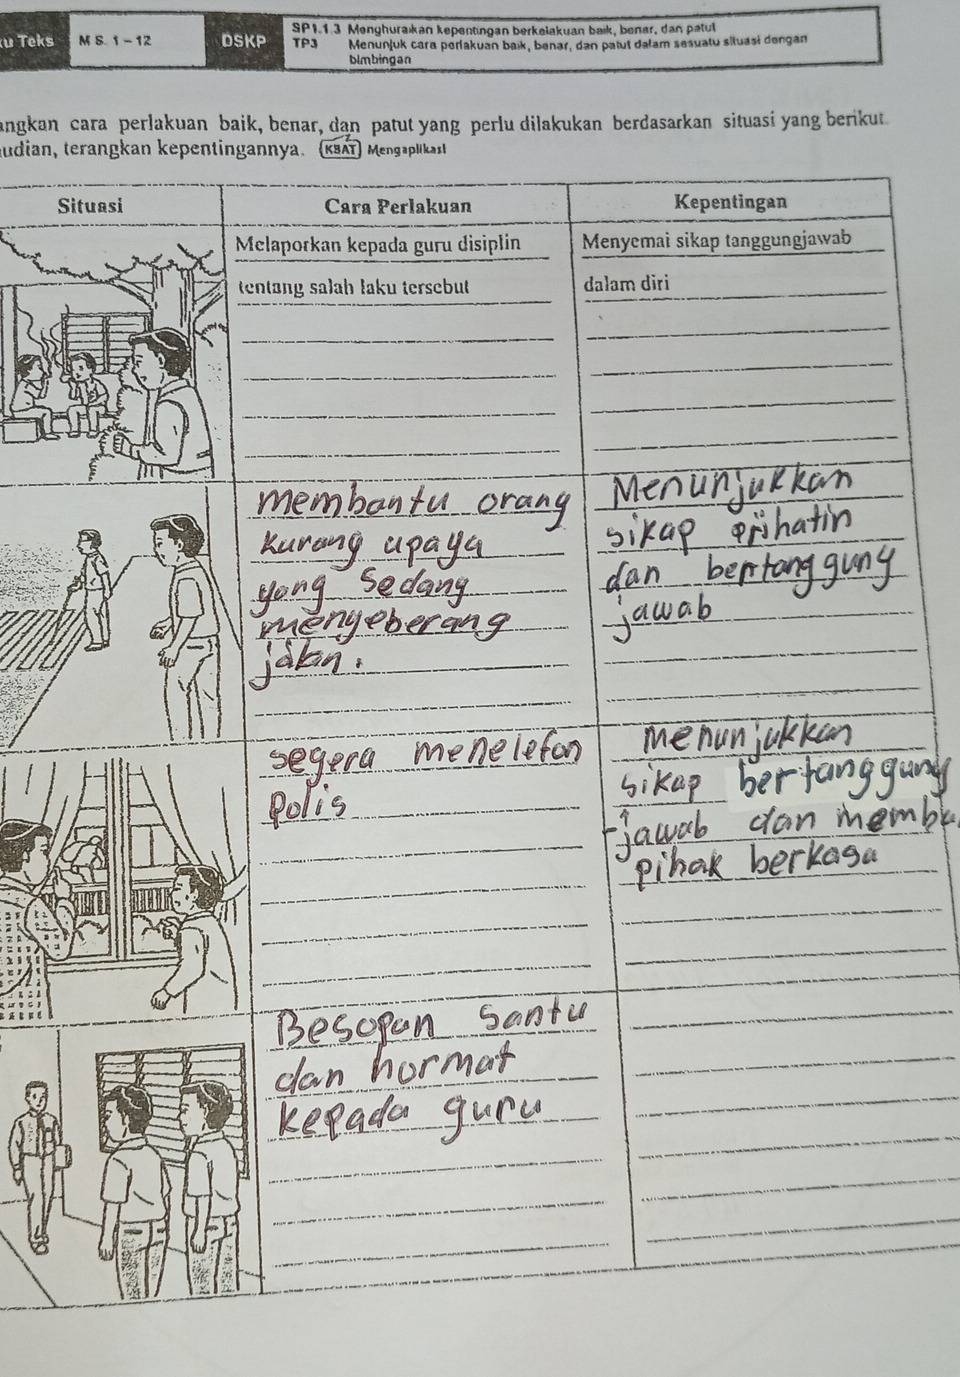 Teks M S. 1 - 12 DSKP SP1.1.3 Menghuraikan kepentingan berkelakuan baik, benar, dan patut
TP3 Menunjuk cara perlakuan baik, benar, dan patut dalam sesuatu situasi dengan
bimbingan
angkan cara perlakuan baik, benar, dan patut yang perlu dilakukan berdasarkan situasi yang berikut.
udian, terangkan kepentingannya. KBAT Mengaplikasi
Situasi Cara Perlakuan Kepentingan
Melaporkan kepada guru disiplin Menyemai sikap tanggungjawab
tentang salah laku tersebut dalam diri
membantu orang Menunjukkan
kurang upaya sikap prihatin
yang sedang dan bertanggung
menyeberang jawab
jalan.
segera menelefon menunjukkan
polis sikap bertanggung
-jawab dan memba
pihak berkasa
Besopan santu
dan hormat
kepada guru